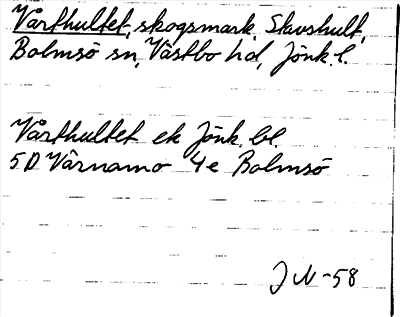 Vårthultet, skogsmark Slavshult,
Bolmsö sn, Västbo hd, Jönk. l.
Vårthultet ek Jönk. bl.
5D Värnamo 4e Bolmsö
J N -58